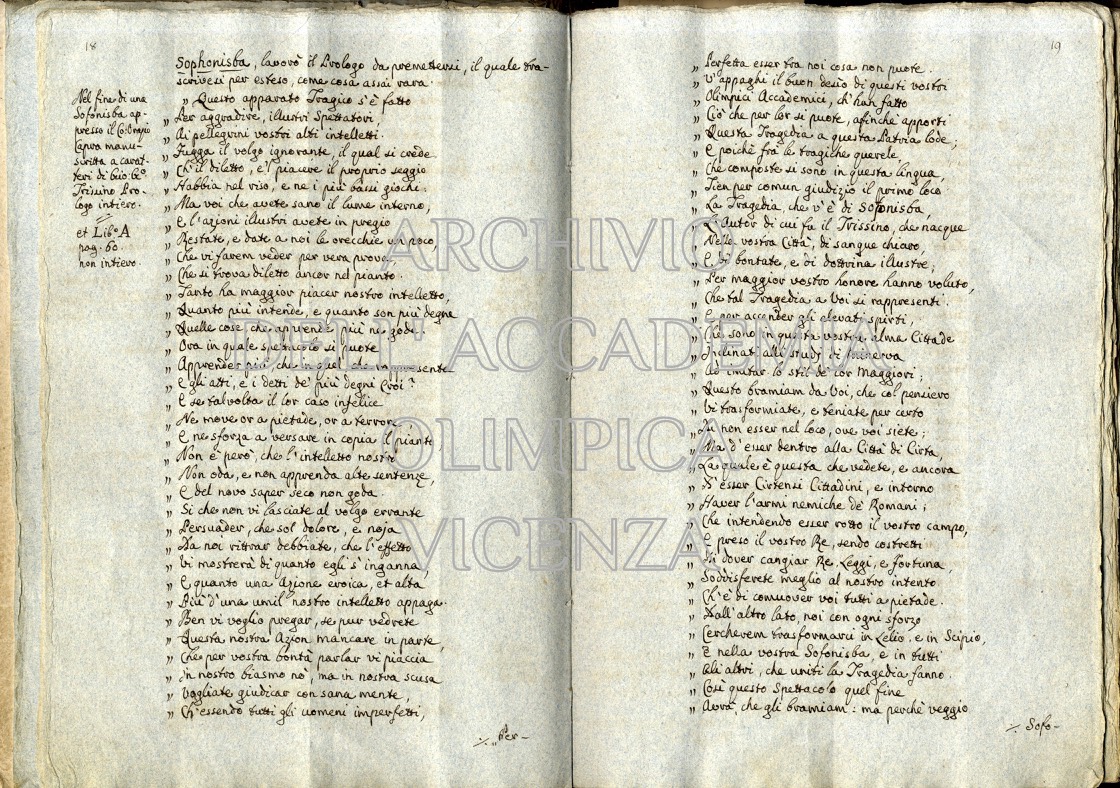 18
Sophonisba, lavorò il Prologo da premettersi, il quale tra-
scrivesi per esteso, come cosa assai rara.
Nel fine di una
Sofonisba ap-
presso il Co: Orazio
Capra manu-
scritta a carat-
teri di buo. Go:
Trisino Pro-
logo intiero.
et Lib.º A
pag. 60.
non intiero.
„ Questo apparato Tragico s'è fatto
„ Per aggradire, illustri Spettatori,
„ Ai pellegrini vostri alti intelletti.
„ Fugga il volgo ignorante, il qual si crede
„ Ch'il diletto, e'l piacere il proprio seggio
„ Habbia nel riso, e ne i più bassi giochi.
„ Ma voi che avete sano il lume interno,
„ E l'azioni illustri avete in pregio
„ Restate, e date a noi le orecchie un poco,
„ Che vi farem veder per vera prova
„ Che si trova diletto ancor nel pianto.
„ Tanto ha maggior piacer nostro intelletto,
„ Quanto più intende, e quanto son più degne
„ Quelle cose che apprende più ne gode.
„ Ora in quale spettacolo si puote
„ Apprender più, che in quel che rappresente
„ E gli atti, e i detti de' più degni Eroi?
„ E se talvolta il lor caso infelice
„ Ne move or a pietade, or a terrore
„ E ne sforza a versare in copia il pianto
„ Non è però che l'intelletto nostro
„ Non oda, e non apprenda alte sentenze,
„ E del novo saper seco non goda.
„ Si che non vi lasciate al volgo errante
„ Persuader, che sol dolore, e noja
„ Da noi ritrar debbiate, che l'effetto
„ Vi mostrerà di quanto egli s'inganna,
„ E quanto una Azione eroica, et alta
„ Più d'una umil nostro intelletto appaga.
„ Ben vi voglio pregar, se pur vedrete
„ Questa nostra Azion mancare in parte,
„ Che per vostra bontà parlar vi piaccia
„ In nostro biasmo nò, ma in nostra scusa
„ Vogliate giudicar con sana mente,
„ Ch'essendo tutti gli uomeni imperfetti,
./. „ Per-
19
„ Perfetta esser tra noi cosa non puote.
„ V'appaghi il buon desio di questi vostri
„ Olimpici Accademici, ch'han fatto
„ Ciò che per lor si puote, afinchè apporti
„ Questa Tragedia a questa Patria lode;
„ E poichè frà le tragiche querele
„ Che composte si sono in questa lingua,
„ Tien per comun giudizio il primo loco
„ La Tragedia, che v'è di Sofonisba,
„ L'Autor di cui fu il Trissino, che nacque
„ Nella vostra Città, di sangue chiaro
„ E di bontate, e di dottrina illustre;
„ Per maggior vostro honore hanno voluto,
„ Che tal Tragedia a Voi si rappresenti.
„ E per accender gli elevati spirti,
„ Che sono in questa vostra alma Cittade
„ Inclinati alli studj di Minerva
„ Ad imitar lo stil de' lor Maggiori;
„ Questo bramiam da Voi, che col pensiero
„ Vi trasformiate, e teniate per certo
„ Di non esser nel loco, ove voi siete;
„ Ma d'esser dentro alla Città di Cirta,
„ La quale è questa che vedete, e ancora
„ D'esser Cirtensi Cittadini, e intorno
„ Haver l'armi nemiche de' Romani;
„ Che intendendo esser rotto il vostro campo,
„ E preso il vostro Re, sendo costretti
„ Di dover cangiar Re, Leggi, e fortuna,
„ Soddisferete meglio al nostro intento
„ Ch'è di comuover voi tutti a pietade.
„ Dall'altro lato, noi con ogni sforzo
„ Cercherem trasformarci in Lelio, e in Scipio,
„ E nella vostra Sofonisba, e in tutti
„ Gli altri, che uniti la Tragedia fanno.
„ Così questo Spettacolo quel fine
„ Avrà, che gli bramiam: ma perchè veggio
./. Sofo-
ARCHIVIO
DELL'ACCADEMIA
OLIMPICA
VICENZA